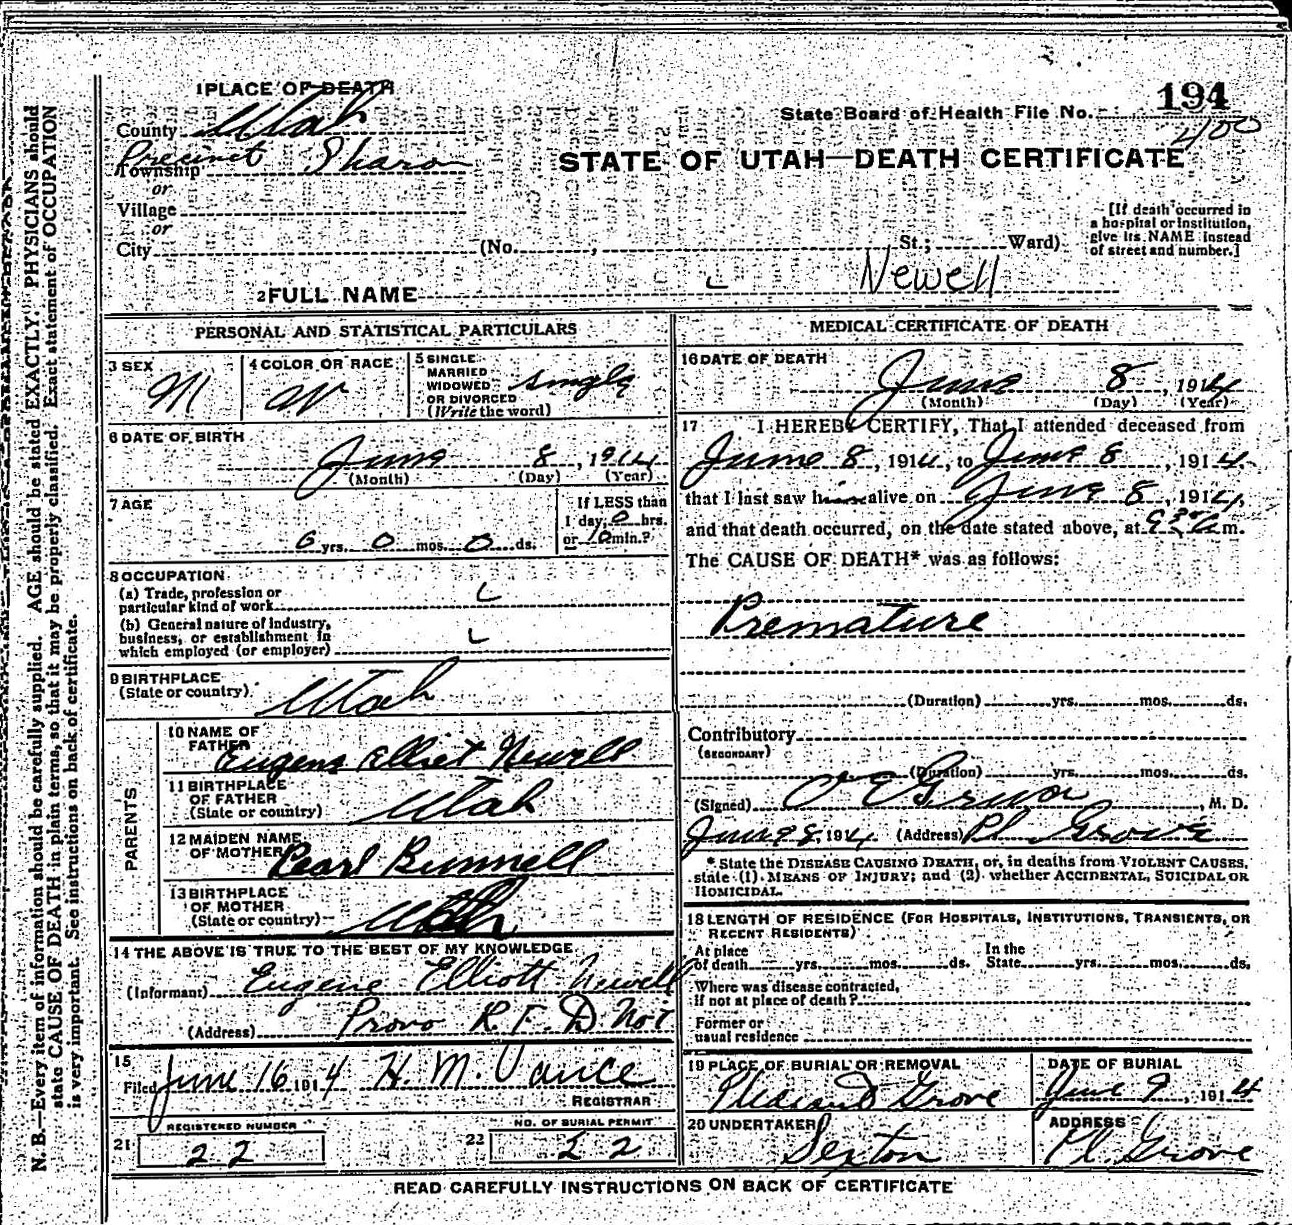 1 PLACE OF DEATH
194
State Board of Health File No.
400
County Utah
Precinct Sharon
Township
or
STATE OF UTAH—DEATH CERTIFICATE
Village
or
City (No. , St.; Ward)
[If death occurred in
a hospital or institution,
give its NAME instead
of street and number.]
2 FULL NAME Newell
PERSONAL AND STATISTICAL PARTICULARS
3 SEX
M
4 COLOR OR RACE
W
5 SINGLE
MARRIED
WIDOWED
OR DIVORCED
(Write the word)
Single
6 DATE OF BIRTH
June 8, 1914
(Month) (Day) (Year)
7 AGE
0 yrs. 0 mos. 0 ds.
If LESS than
1 day, 0 hrs.
or 10 min.?
8 OCCUPATION
(a) Trade, profession or
particular kind of work
(b) General nature of industry,
business, or establishment in
which employed (or employer)
9 BIRTHPLACE
(State or country) Utah
PARENTS
10 NAME OF
FATHER Eugene Elliot Newell
11 BIRTHPLACE
OF FATHER
(State or country) Utah
12 MAIDEN NAME
OF MOTHER Pearl Bunnell
13 BIRTHPLACE
OF MOTHER
(State or country) Utah
14 THE ABOVE IS TRUE TO THE BEST OF MY KNOWLEDGE
(Informant) Eugene Elliott Newell
(Address) Provo R.F.D. No 1
15
Filed June 16 1914 H. M. Vance
REGISTRAR
REGISTERED NUMBER
21 22
NO. OF BURIAL PERMIT
22 22
MEDICAL CERTIFICATE OF DEATH
16 DATE OF DEATH
June 8, 1914
(Month) (Day) (Year)
17 I HEREBY CERTIFY, That I attended deceased from
June 8, 1914, to June 8, 1914.
that I last saw him alive on June 8, 1914.
and that death occurred, on the date stated above, at m.
The CAUSE OF DEATH* was as follows:
Premature
(Duration) yrs. mos. ds.
Contributory
(SECONDARY)
(Duration) yrs. mos. ds.
(Signed) , M. D.
June 8, 1914 (Address) Pl Grove
* State the DISEASE CAUSING DEATH, or, in deaths from VIOLENT CAUSES,
state (1) MEANS OF INJURY; and (2) whether ACCIDENTAL, SUICIDAL OR
HOMICIDAL.
18 LENGTH OF RESIDENCE (FOR HOSPITALS, INSTITUTIONS, TRANSIENTS, OR
RECENT RESIDENTS)
At place
of death yrs. mos. ds.
In the
State yrs. mos. ds.
Where was disease contracted,
if not at place of death?
Former or
usual residence
19 PLACE OF BURIAL OR REMOVAL
Pleasant Grove
DATE OF BURIAL
June 9, 1914
20 UNDERTAKER
Sexton
ADDRESS
Pl Grove
READ CAREFULLY INSTRUCTIONS ON BACK OF CERTIFICATE
N. B.—Every item of information should be carefully supplied. AGE should be stated EXACTLY. PHYSICIANS should
state CAUSE OF DEATH in plain terms, so that it may be properly classified. Exact statement of OCCUPATION
is very important. See instructions on back of certificate.